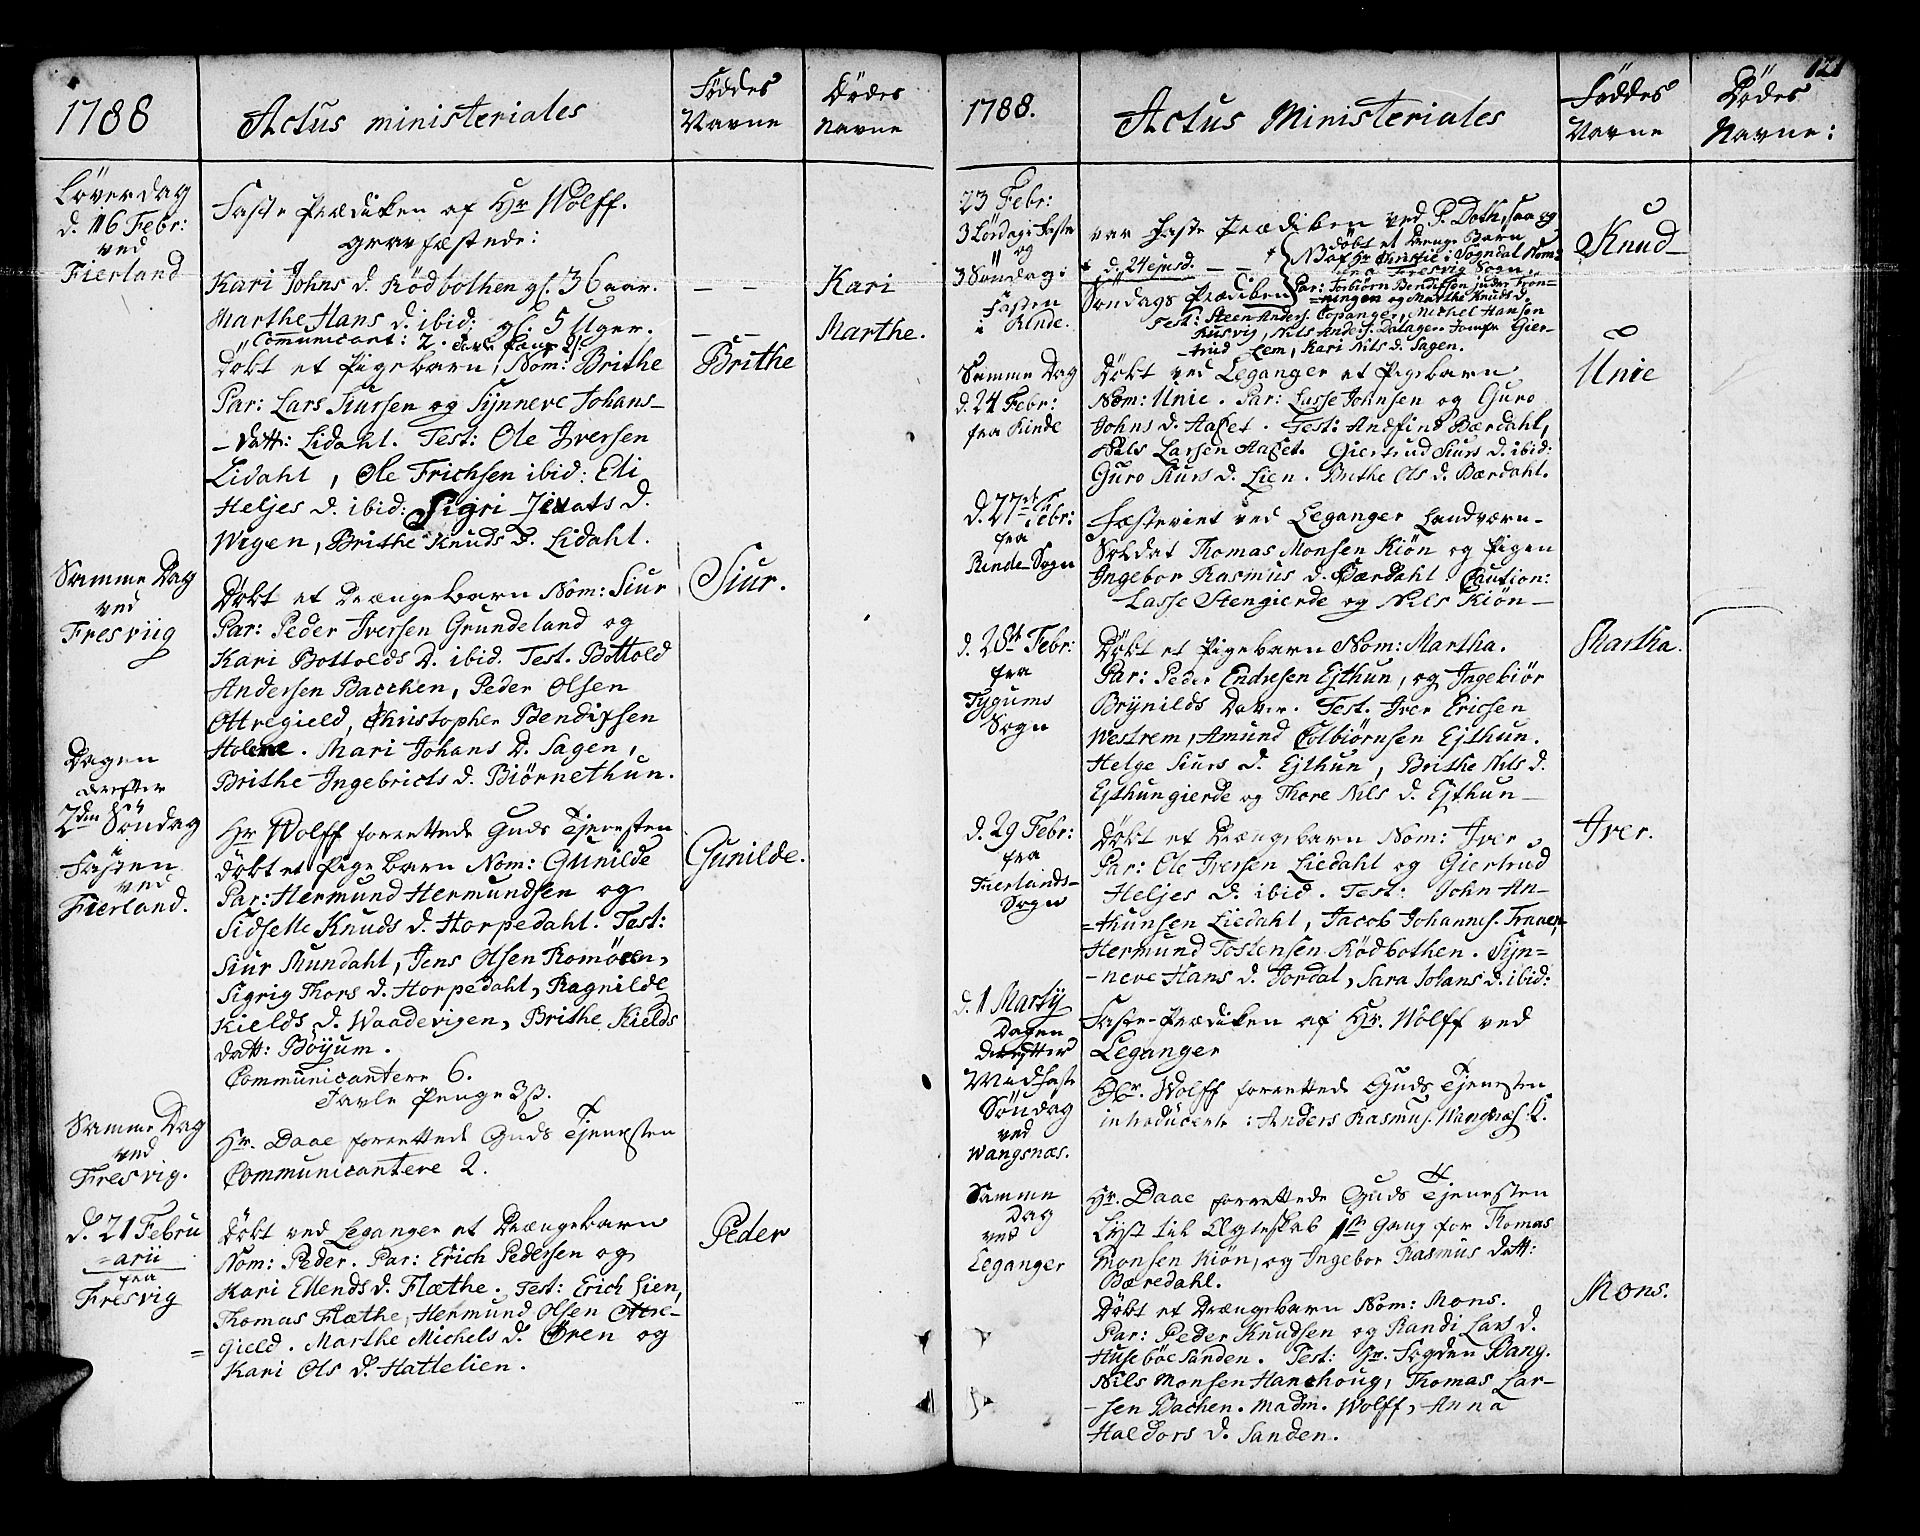 1788
Actus ministeriales
Föddes
Navne
Dödes
Navne
Löverdag
d. 16 Febr:
ved
Fierland
Faste Prædiken af Hr Wolff.
gravfæstede:
Kari Johns d. Rödbothen gl. 36 aar.
— —
Kari
Marthe Hans d. ibid: gl. 5 Uger.
— —
Marthe.
Comunicant: 2.
Döbt et Pigebarn, Nom: Brithe
Brithe
Par: Lars Siursen og Synneve Johans-
-datt: Lidahl. Test: Ole Iversen
Lidahl, Ole Frichsen ibid: Eli
Heljes d. ibid: Sigri d.
Wigen, Brithe Knuds d. Lidahl.
Samme Dag
ved
Fresviig
Döbt et Drængebarn Nom: Siur
Siur.
Par: Peder Iversen Grundeland og
Kari Bottolds d. ibid. Test. Bottold
Andersen Bacchen, Peder Olsen
Ottregield, Christopher Bendixsen
Holene. Mari Johans d. Sagen,
Brithe Ingebricts d. Biörnethun.
Dagen
derefter
2den Söndag
i
Fasten
ved
Fierland.
Hr Wolff forrettede Guds Tjenesten
döbt et Pige barn Nom: Gunilde
Gunilde.
Par: Hermund Hermundsen og
Sidselle Knuds d. Horpedahl. Test:
Siur Mundahl, Jens Olsen Romören,
Sigrig Thors d. Horpedahl, Ragnilde
Kields d. Waadevigen, Brithe Kields
datt: Böyum.
Communicantere 6.
Tavle Penge 3ß.
Samme Dag
ved
Fresvig.
Hr. Daae forrettede Guds Tjenesten
Communicantere 2.
d. 21 Febru
=arii
fra
Fresvig
Döbt ved Leganger et Drængebarn
Peder
Nom: Peder. Par: Erich Pedersen og
Kari Ellends d. Flæthe. Test: Erich Lien,
Thomas Flæthe, Hermund Olsen Otre-
= gield. Marthe Michels d. Ören og
Kari Ols d. Hattelien.
121
1788.
Actus Ministeriales
Föddes
Navne
Dödes
Navne:
23 Febr:
3 Lördag i Faste
og
3 Söndag i
Fasten
i Rinde.
var Faste Prædiken ved P. Doth, saa og
d. 24 ejusd. — —
Söndags Prædiken
NB döbt et Drenge Barn
af Hr Christie i Sogndal Nom:
Fresvig Sogn.
Par: Torbiörn Bendixsen
=ningen og Marthe Knuds d.
Test: Steen Anders. Eopanger, Michel Hansen
Husvig, Nils Anders. Dalager Jomfr Gier-
-trud Lem, Kari Nils d. Sagen.
Knud
Samme Dag
d. 24 Febr:
fra Rinde
Döbt ved Leganger et Pigebarn
Unie
Nom: Unie. Par: Lasse Johnsen og Guro
Johns d. Haset. Test: Andfind Bærdahl,
Nils Larsen Haset. Giertrud Siurs d. ibid:
Guro Siurs d. Lien. Brithe Ols d. Bærdahl.
d. 27de Febr:
fra
Rinde Sogn
Fæsteviet ved Leganger Landværn-
Soldat Thomas Monsen Kiön og Pigen
Ingebor Rasmus d. Bærdahl. Caution:
Lasse Stengierde og Nils Kiön—
d. 28de Febr:
fra
Tygums
Sogn
Döbt et Pigebarn Nom: Martha.
Martha.
Par: Peder Endresen Ejthun, og Ingebiör
Brynilds Dotter. Test. Iver Ericsen
Westrem, Amund Colbiörnsen Ejthun.
Helge Siurs d. Ejthun, Brithe Nils d.
Ejthungierde og Thore Nils d. Ejthun—
d. 29 Febr:
fra
Fierlands-
Sogn
Döbt et Drængebarn Nom: Iver
Iver.
Par: Ole Iversen Liedahl og Giertrud
Heljes d. ibid. Test: John An-
=thunsen Liedahl, Jacob Johannes.
Hermund Tostensen Rödbothen. Syn-
-neve Hans d. Jordal, Sara Johans d. ibid:
d. 1 Martij
Faste-Prædiken af Hr. Wolff ved
Leganger
Dagen
derefter
Midfaste
Söndag
ved
Wangsnæs.
Hr. Wolff forrettede Guds Tjenesten
introducerte: Anders Rasmus. Wangsnæs K.
Samme
Dag
ved
Leganger
Hr. Daae forrettede Guds Tjenesten
Lyst til Ægteskab 1ste Gang for Thomas
Monsen Kiön, og Ingebor Rasmus datt:
Bæredahl.
Döbt et Drængebarn Nom: Mons.
Mons.
Par: Peder Knudsen og Randi Lars d.
Huseböe Sanden. Test: Hr. Fogden Bang.
Nils Monsen Hanehoug, Thomas Lar-
-sen Bachen. Madm. Wolff, Anna
Haldors d. Sanden.